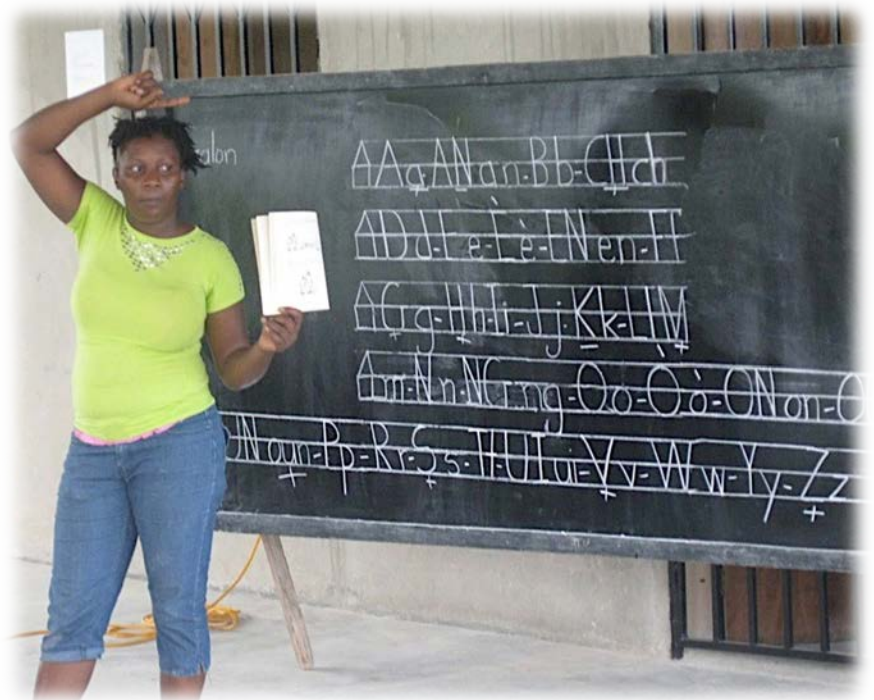 alon
Aa-AN an-Bb-CH ch
Dd-Ee-Èè-EN en-Ff
Gg-Hh-Ii-Jj-Kk-Ll-M
m-Nn-NG ng-Oo-Òò-ON on-O
UN oun-Pp-Rr-Ss-Tt-UI ui-Vv-Ww-Yy-Zz